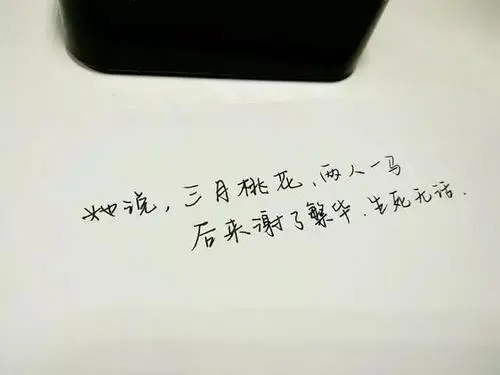 她说，三月桃花、两人一马
后来谢了繁华、生死无话.